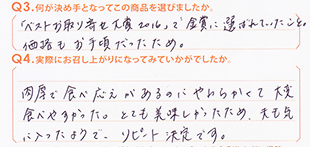 Q3.何が決め手となってこの商品を選びましたか。
「ベストお取り寄せ大賞2016」で金賞に選ばれていたこと。
価格もお手頃だったため。
Q4.実際にお召し上がりになってみていかがでしたか。
肉厚で食べ応えがあるのにやわらかくて大変
食べやすかった。とても美味しかったため、夫も気
に入ったようで、リピート決定です。